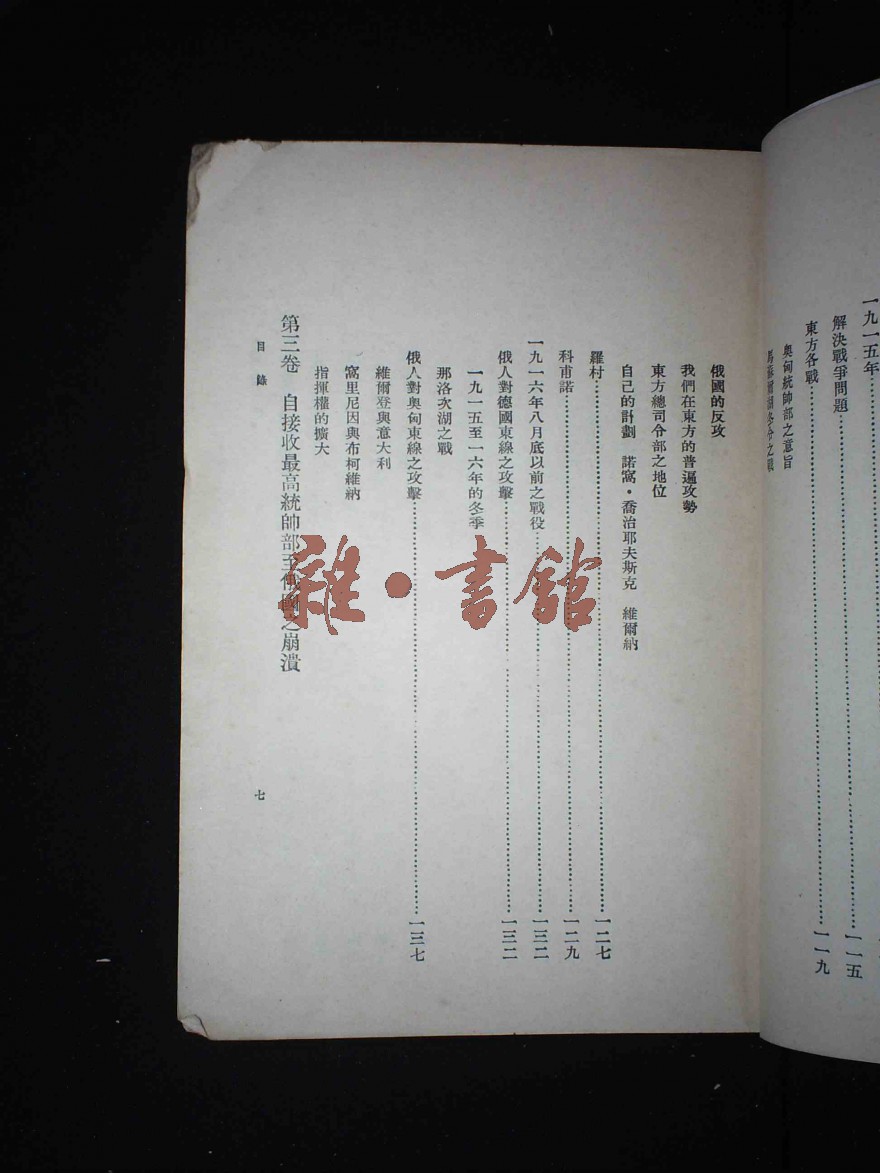 一九一五年
解決戰爭問題……一一五
東方各戰……一一九
奧匈統帥部之意旨
俄國的反攻
我們在東方的普遍攻勢
東方總司令部之地位
自己的計劃　諾窩·喬治耶夫斯克　維爾納
羅村……一二七
科甫諾……一二九
一九一六年八月底以前之戰役……一三二
俄人對德國東線之攻擊……一三二
一九一五至一六年的冬季
那洛次湖之戰
俄人對奧匈東線之攻擊……一三七
維爾登與意大利
窩里尼因與布柯維納
指揮權的擴大
第三卷　自接收最高統帥部至俄國之崩潰
目錄
七
雜·書館